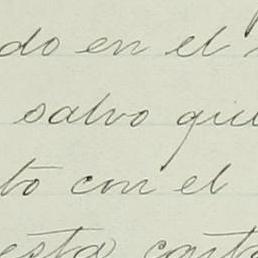 do en el
salvo que
to con el
esta carta